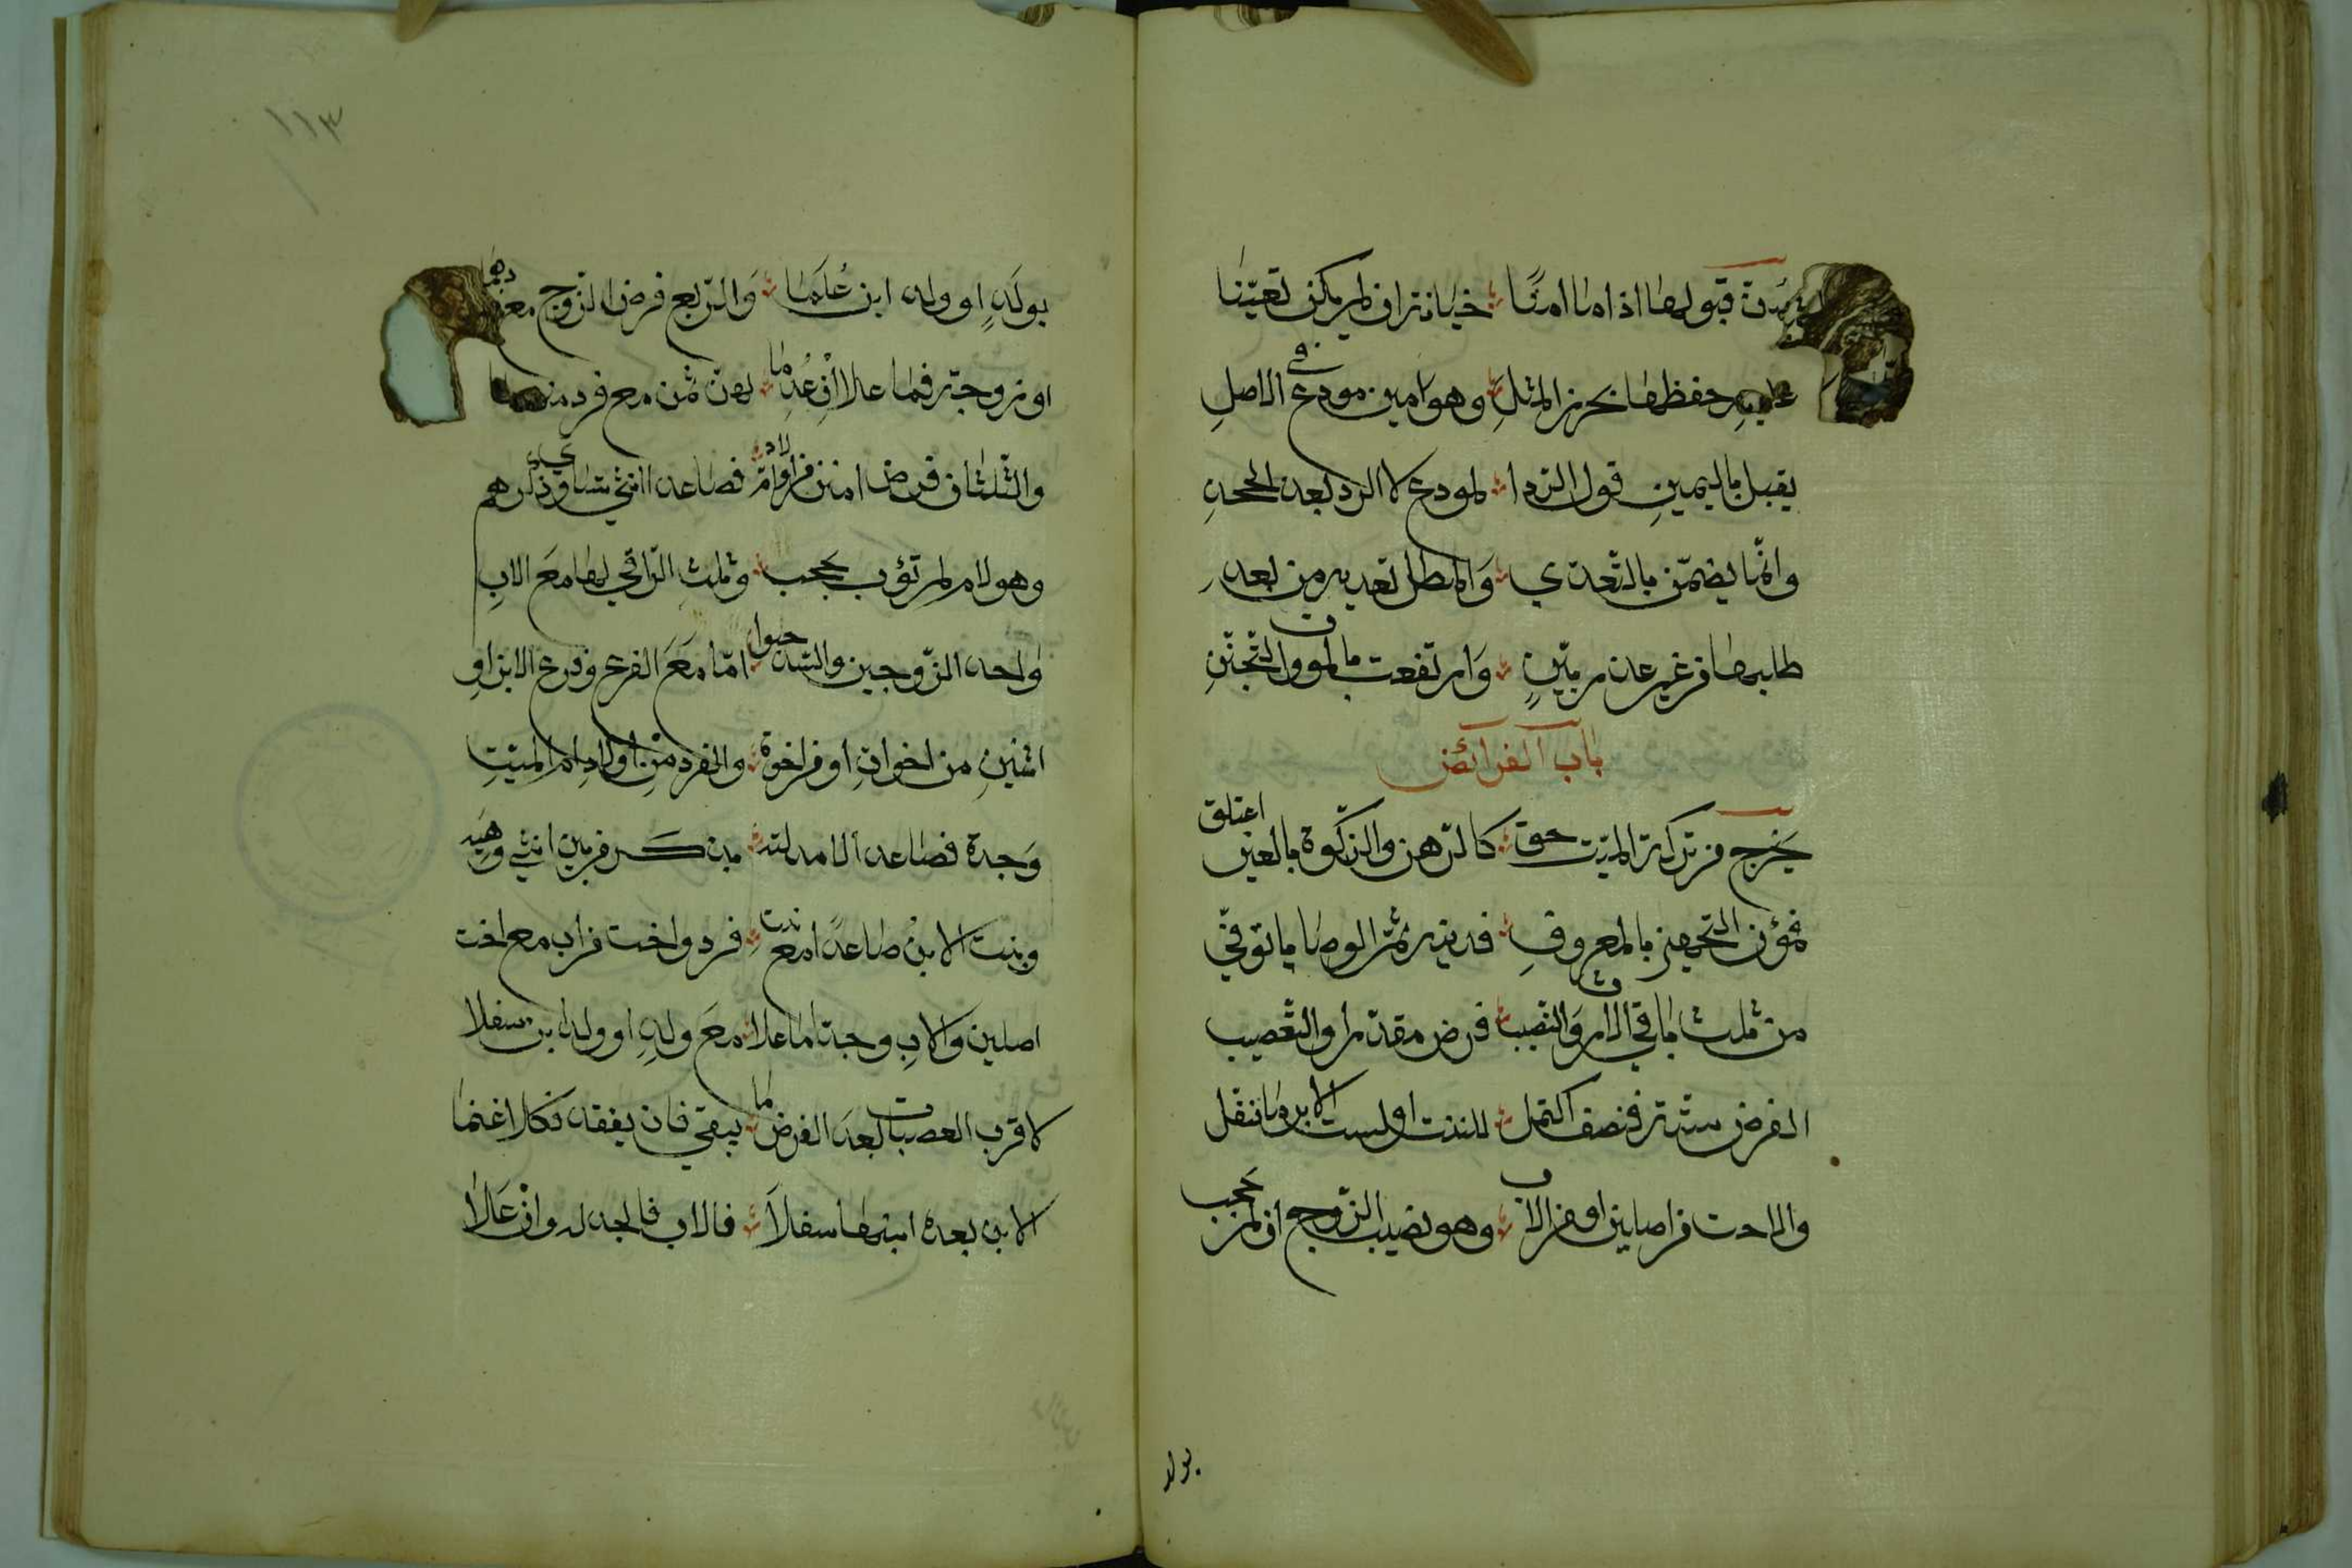 قبولها اذا ما امنا خيانة ان لم يكن تعينا
عليه حفظها بحرز المثل وهو امين مودع في الاصل
يقبل باليمين قول الرد لمودع لا الرد بعد الجحد
وانما يضمن بالتعدي والمطل بعد من بعد
طلبها من غير عذر بين وارتفعت بالموت والتجنن
باب الفرائض
يخرج من تركة الميت حق كالرهن والزكوة بالعين اعتلق
فمؤن التجهيز بالمعروف فدينه ثم الوصايا توفي
من ثلث باقي الارث والنصيب فرض مقدر او التعصيب
الفرض ستة فنصف اكتمل للبنت او لبنت الابن ما نفل
والاخت من اصلين او من الاب وهو نصيب الزوج ان لم يحجب
بولد
١١٣
بولد او ولد ابن علما والربع فرض الزوج مع
او زوجة فما علا ان عدما ثمن مع فرد منهما
والثلثان فرض من فصاعدا انثى تساوي ذكرهم
وهو لام لم تؤب بحجب وثلث الباقي لها مع الاب
واحد الزوجين والسدس حبوا اما مع الفرع وفرع الابن او
اثنين من اخوات او من اخوة والفرد من اولاد ام الميت
وجدة فصاعدا لا مدليه بذكر من بين انثى وهيه
وبنت الابن صاعدا مع بنت فرد واخت من اب مع اخت
اصلين والاب وجدا ما علا مع ولد او ولد ابن سفلا
لاقرب العصبات بعد الفرض ما يبقى فان يفقد فكلا غنما
الابن بعده ابنه ما سفلا فالاب فالجد له وان علا